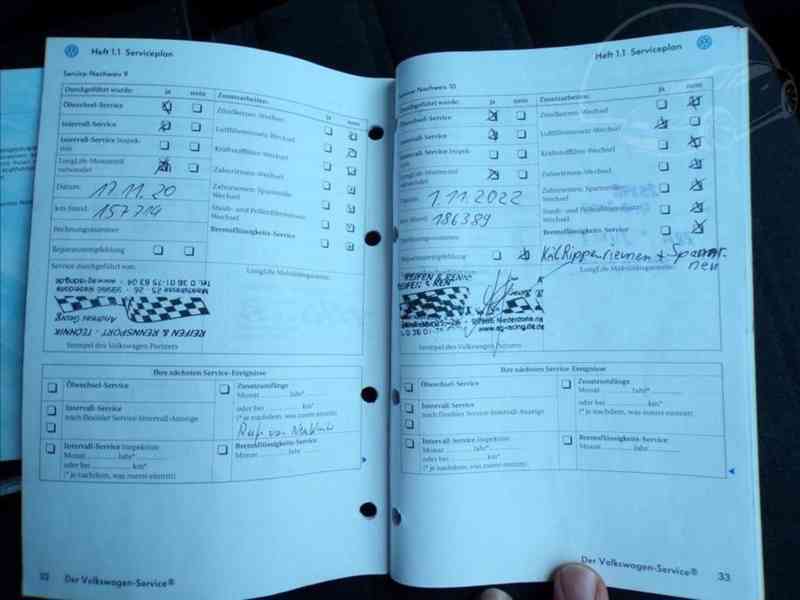 Heft 1.1 Serviceplan
Service-Nachweis 9
Durchgeführt wurde: ja nein Zusatzarbeiten: ja nein
Ölwechsel-Service
Zündkerzen-Wechsel
Intervall-Service
Luftfiltereinsatz-Wechsel
Intervall-Service Inspektion
Kraftstofffilter-Wechsel
LongLife-Motorenöl verwendet
Zahnriemen-Wechsel
Datum: 17.11.20
Zahnriemen-Spannrolle Wechsel
km-Stand: 157714
Staub- und Pollenfiltereinsatz Wechsel
Rechnungsnummer
Bremsflüssigkeits-Service
Reparaturempfehlung
Service durchgeführt von:
REIFEN & RENNSPORT - TECHNIK
Andreas Georg
Stempel des Volkswagen Partners
Ihre nächsten Service-Ereignisse
Ölwechsel-Service
Zusatzumfänge
Monat Jahr*
Intervall-Service
nach flexibler Service-Intervall-Anzeige
oder bei km*
(* je nachdem, was zuerst eintritt)
Intervall-Service Inspektion
Monat Jahr*
oder bei km*
(* je nachdem, was zuerst eintritt)
Bremsflüssigkeits-Service
Monat Jahr
32 Der Volkswagen-Service®
Heft 1.1 Serviceplan
Service-Nachweis 10
Durchgeführt wurde: ja nein Zusatzarbeiten: ja nein
Ölwechsel-Service
Zündkerzen-Wechsel
Intervall-Service
Luftfiltereinsatz-Wechsel
Intervall-Service Inspektion
Kraftstofffilter-Wechsel
LongLife-Motorenöl verwendet
Zahnriemen-Wechsel
Datum: 1.11.2022
Zahnriemen-Spannrolle Wechsel
km-Stand: 186389
Staub- und Pollenfiltereinsatz Wechsel
Rechnungsnummer
Bremsflüssigkeits-Service
Reparaturempfehlung
Keilrippenriemen + Spannr. neu
Stempel des Volkswagen Partners
Ihre nächsten Service-Ereignisse
Ölwechsel-Service
Zusatzumfänge
Monat Jahr*
Intervall-Service
nach flexibler Service-Intervall-Anzeige
oder bei km*
(* je nachdem, was zuerst eintritt)
Intervall-Service Inspektion
Monat Jahr*
oder bei km*
(* je nachdem, was zuerst eintritt)
Bremsflüssigkeits-Service
Monat Jahr
Der Volkswagen-Service® 33